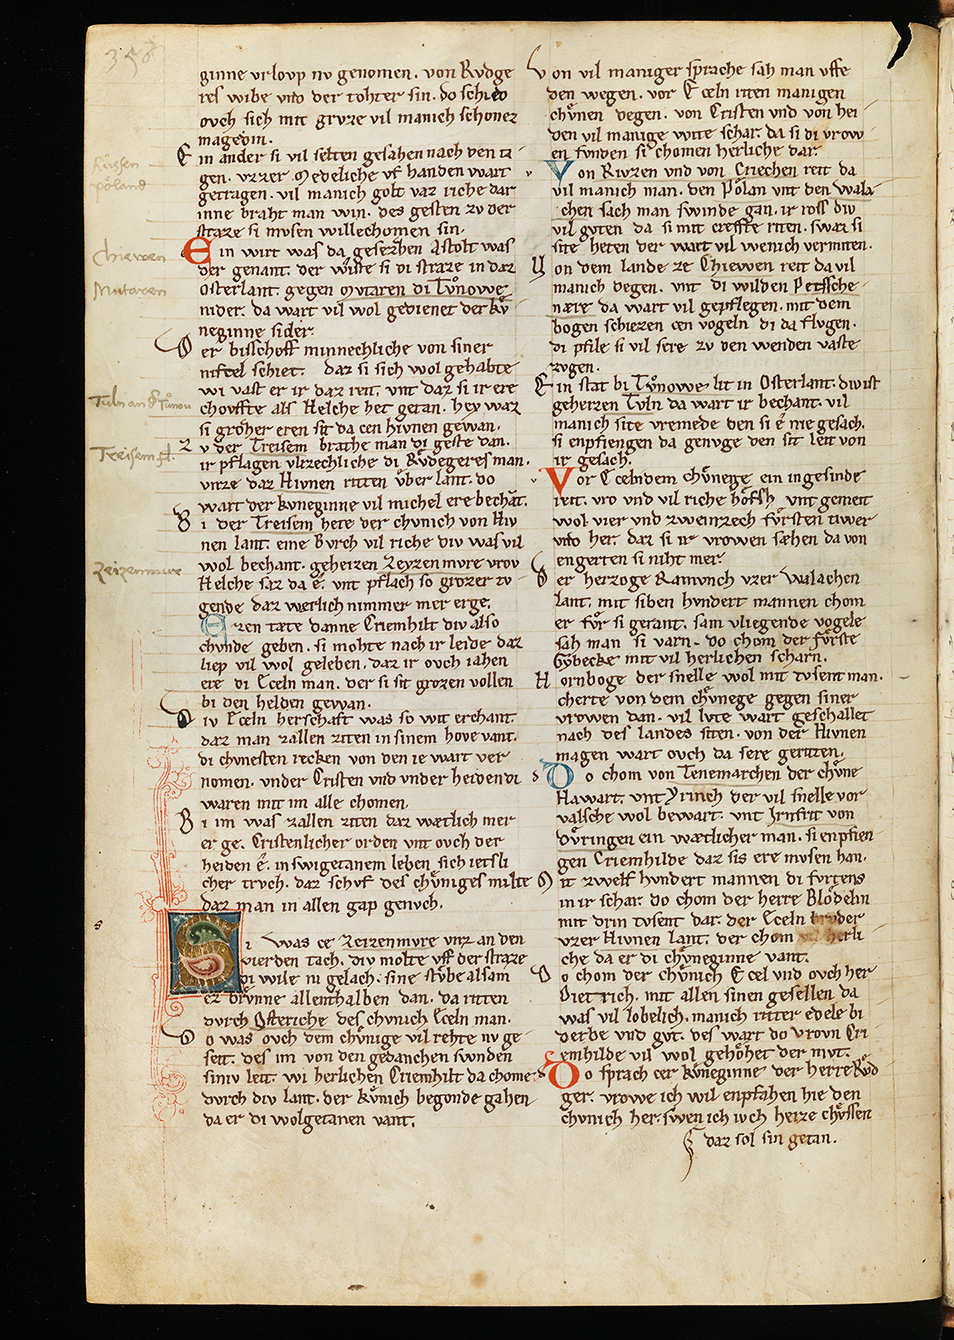 358
ginne vrlovp nv genomen. von Rvdge
res wibe vnd der tohter sin. do schied
ovch sich mit grvze vil manich schonez
magedin.
Ein ander si vil selten gesahen nach den ta
gen. vzzer Medeliche vf handen wart
getragen. vil manich golt vaz riche dar
inne braht man win. des gesten zv der
straze si mvsen willechomen sin.
Ein wirt was da gesezzen Astolt was
der genant. der wiste si di straze in daz
Osterlant. gegen Mvtaren di Tvͦnowe
nider. da wart vil wol gedienet der kv
neginne sider.
Der bisschoff minnechliche von siner
niftel schiet. daz si sich wol gehabte
wi vast er ir daz riet. vnt daz si ir ere
chovffte als Helche het getan. hey waz
si grozer eren sit da cen hivnen gewan.
Zv der Treisem brahte man di geste dan.
ir pflagen vlizechliche di Rvdegeres man.
vnze daz Hivnen ritten vber lant. do
wart der kvneginne vil michel ere bechant.
Bi der Treisem hete der chvnich von Hiv
nen lant. eine Bvrch vil riche div was vil
wol bechant. geheizen Zeyzenmvre vrov
Helche saz da e. vnt pflach so grozer tv
gende daz werlich nimmer mer erge.
Ezen tæte danne Criemhilt div also
chvnde geben. si mohte nach ir leide daz
liep vil wol geleben. daz ir ovch iahen
ere di Eceln man. der si sit grozen vollen
bi den helden gewan.
Div Eceln herschaft was so wit erchant.
daz man zallen ziten in sinem hove vant.
di chvnesten recken von den ie wart ver
nomen. vnder Cristen vnd vnder heiden di
waren mit im alle chomen.
Bi im was zallen ziten daz wætlich mer
er ge. Cristenlicher orden vnt ovch der
heiden e. in swigetanem leben sich ietsli
cher trvch. daz schvf des chvͤniges milte
daz man in allen gap genvch.
Si was ce Zeizenmvre vnz an den
vierden tach. div molte vff der straze
di wile ni gelach. sine stvbe alsam
ez brvnne allenthalben dan. da ritten
dvrch Osteriche des chvnich Eceln man.
Do was ovch dem chvnige vil rehte nv ge
seit. des im von den gedanchen swnden
siniv leit. wi herlichen Criemhilt da chome.
dvrch div lant. der kvnich begonde gahen
da er di wolgetanen vant.
Von vil maniger sprache sah man vffe
den wegen. vor Eceln riten manigen
chvͤnen degen. von Cristen vnd von hei
den vil manige wite schar. da si di vrow
en fvnden si chomen herliche dar.
Von Rivzen vnd von Criechen reit da
vil manich man. den Pölan vnt den wala
chen sach man swinde gan. ir ross div
vil gvten da si mit creffte riten. swaz si
site heten der wart vil wenich vermiten.
Von dem lande ze Chiewen reit da vil
manich degen. vnt di wilden Petssche
nære da wart vil gepflegen. mit dem
bogen schiezen cen vogeln di da flvgen.
di pfile si vil sere zv den wenden vaste
zvgen.
Ein stat bi Tvͦnowe lit in Osterlant. div ist
geheizen Tvln da wart ir bechant. vil
manich site vremede den si e nie gesach.
si enpfiengen da genvge den sit leit von
ir gesach.
Vor Eceln dem chvͤnege ein ingesinde
reit. vro vnd vil riche höfsh vnt gemeit
wol vier vnd zweinzech fvͤrsten tiwer
vnd her. daz si ir vrowen sæhen da von
engerten si niht mer.
Der herzoge Ramvnch vzer Walachen
lant. mit siben hvndert mannen chom
er fvͤr si gerant. sam vliegende vogele
sah man si varn. do chom der fvͤrste
Gybecke mit vil herlichen scharn.
Hornboge der snelle wol mit tvsent man.
cherte von dem chvͤnege gegen siner
vrowen dan. vil lvte wart geschallet
nach des landes siten. von der Hivnen
magen wart ovch da sere geriten.
Do chom von Tenemarchen der chvͤne
Hawart. vnt Yrinch der vil snelle vor
valsche wol bewart. vnt Irnfrit von
Dvͤringen ein wætlicher man. si enpfien
gen Criemhilde daz sis ere mvsen han.
Mit zwelf hvndert mannen di fvrtens
in ir schar. do chom der herre Blödelin
mit drin tvsent dar. der Eceln brvder
vzer Hivnen lant. der chom vil herli
che da er di chvͤneginne vant.
Do chom der chvͤnich Ecel vnd ovch her
Dietrich. mit allen sinen gesellen da
was vil lobelich. manich ritter edele bi
derbe vnd gvt. des wart do vrovn Cri
emhilde vil wol gehöhet der mvt.
Do sprach cer kvneginne der herre Rvͤd
ger. vrowe ich wil enpfahen hie den
chvnich her. swen ich ivch heize chvͤssen
daz sol sin getan.
Reüssen
pöland
Chiewen
Mutaren
Tuln an der Tůnou
Treisem fl.
Zeizenmure